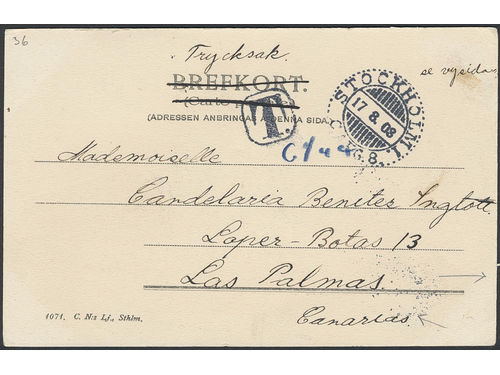 36
Trycksak.
BREFKORT.
(Carte
se vysidan
(ADRESSEN ANBRINGAS Å DENNA SIDA.)
T.
STOCKHOLM 1
17.8.08
6.8.
Mademoiselle
Candelaria Benitez Inglott
Lopez-Botas 13
Las Palmas.
Canarias
4071. C. N:s Lj., Sthlm.